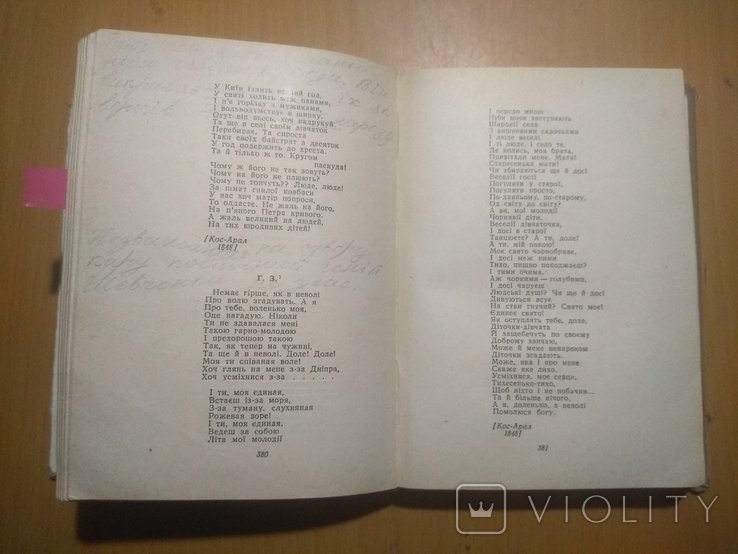 У Київ їздить всякий год,
У свиті ходить меж панами,
І п'є горілку з мужиками,
І вольнодумствує в шинку.
Отут він ввесь, хоч надрукуй.
Та ще в селі своїм дівчаток
Перебирає. Та спроста
Таки своїх байстрят з десяток
У год подержить до хреста.
Та й тілько ж то. Кругом
паскуда!
Чому ж його не так зовуть?
Чому на його не плюють?
Чому не топчуть?? Люде, люде!
За шмат гнилої ковбаси
У вас хоч матір попроси,
То оддасте. Не жаль на його,
На п'яного Петра кривого.
А жаль великий на людей,
На тих юродивих дітей!
[Кос-Арал
1848]
Г. З.¹
Немає гірше, як в неволі
Про волю згадувать. А я
Про тебе, воленько моя,
Оце нагадую. Ніколи
Ти не здавалася мені
Такою гарно-молодою
І прехорошою такою
Так, як тепер на чужині,
Та ще й в неволі. Доле! Доле!
Моя ти співаная воле!
Хоч глянь на мене з-за Дніпра,
Хоч усміхнися з-за . . . . .
І ти, моя єдиная,
Встаєш із-за моря,
З-за туману, слухняная
Рожевая зоре!
І ти, моя єдиная,
Ведеш за собою
Літа мої молодії
380
І передо мною
Ніби море заступають
Широкії села
З вишневими садочками
І люде веселі.
І ті люде, і село те,
Де колись, мов брата,
Привітали мене. Мати!
Старесенька мати!
Чи збираються ще й досі
Веселії гості
Погуляти у старої,
Погуляти просто,
По-давньому, по-старому,
Од світу до світу?
А ви, мої молодії
Чорнявії діти,
Веселії дівчаточка,
І досі в старої
Танцюєте? А ти, доле!
А ти, мій покою!
Моє свято чорнобриве,
І досі меж ними
Тихо, пишно походжаєш?
І тими очима,
Аж чорними — голубими,
І досі чаруєш
Людські душі? Чи ще й досі
Дивуються всує
На стан гнучий? Свято моє!
Єдинеє свято!
Як оступлять тебе, доле,
Діточки-дівчата
Й защебечуть по своєму
Доброму звичаю,
Може й мене ненароком
Діточки згадають.
Може, яка і про мене
Скаже яке лихо.
Усміхнися, моє серце,
Тихесенько-тихо,
Щоб ніхто і не побачив...
Та й більше нічого.
А я, доленько, в неволі
Помолюся богу.
[Кос-Арал
1848]
381
VIOLITY